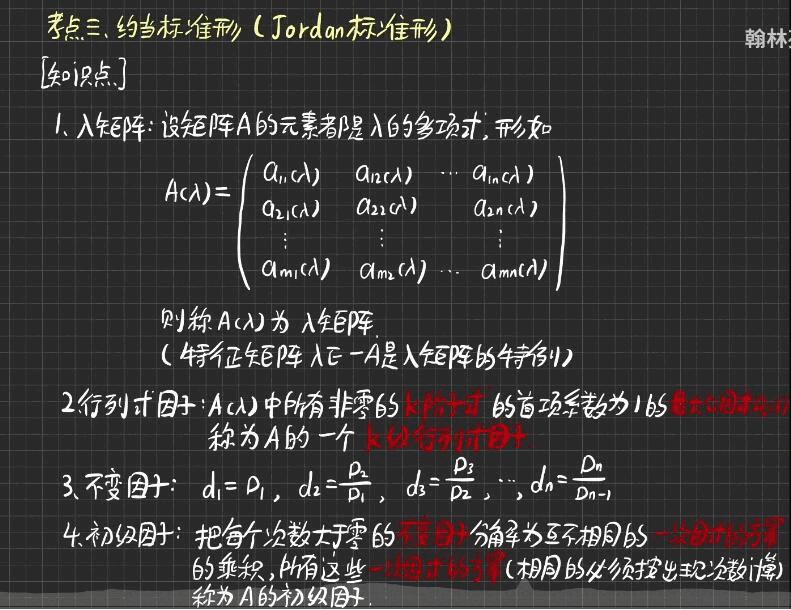 考点三、约当标准形(Jordan标准形)
翰林
[知识点]
1、λ矩阵:设矩阵A的元素都是λ的多项式,形如
A(λ)=
a₁₁(λ) a₁₂(λ) ⋯ a₁ₙ(λ)
a₂₁(λ) a₂₂(λ) a₂ₙ(λ)
⋮ ⋮ ⋮
aₘ₁(λ) aₘ₂(λ) ⋯ aₘₙ(λ)
则称A(λ)为λ矩阵.
(特征矩阵λE-A是λ矩阵的特例)
2.行列式因子:A(λ)中所有非零的k阶子式的首项系数为1的最大公因式
称为A的一个k级行列式因子.
3、不变因子: d₁=D₁, d₂=D₂/D₁, d₃=D₃/D₂, ⋯, dₙ=Dₙ/Dₙ₋₁
4.初级因子:把每个次数大于零的不变因子分解为互不相同的一次因式的方幂
的乘积,所有这些一次因式的方幂(相同的必须按出现次数计算)
称为A的初级因子.